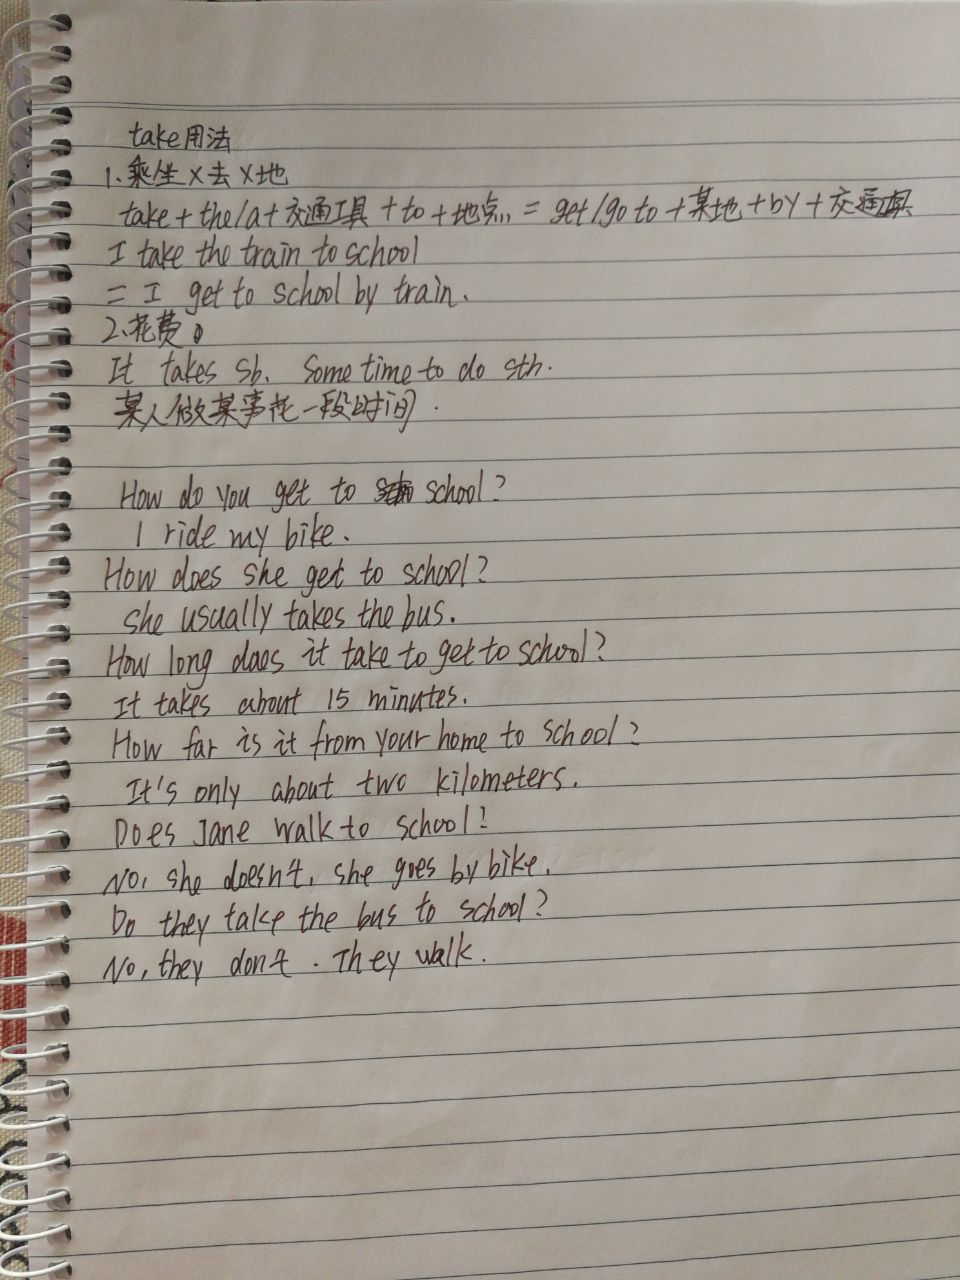 take用法
1.乘坐X去X地
take+the/a+交通工具+to+地点,,=get/go to+某地+by+交通工具
I take the train to school
=I get to school by train.
2.花费。
It takes sb. some time to do sth.
某人做某事花一段时间.
How do you get to school?
I ride my bike.
How does she get to school?
She usually takes the bus.
How long daes it take to get to school?
It takes about 15 minutes.
How far is it from your home to school?
It's only about two kilometers.
Does Jane walk to school?
No, she doesn't, she goes by bike.
Do they take the bus to school?
No, they don't. They walk.